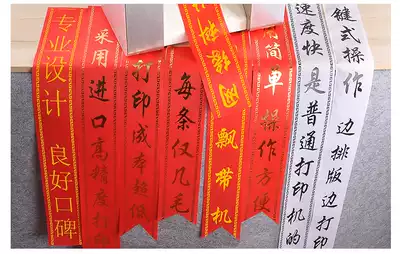 专业设计 良好口碑
采用进口高精度打
打印成本超低
每条仅几毛
排操网飘带机
简单操作方便
速度快是普通打印机的
键式操作 边排版边打印